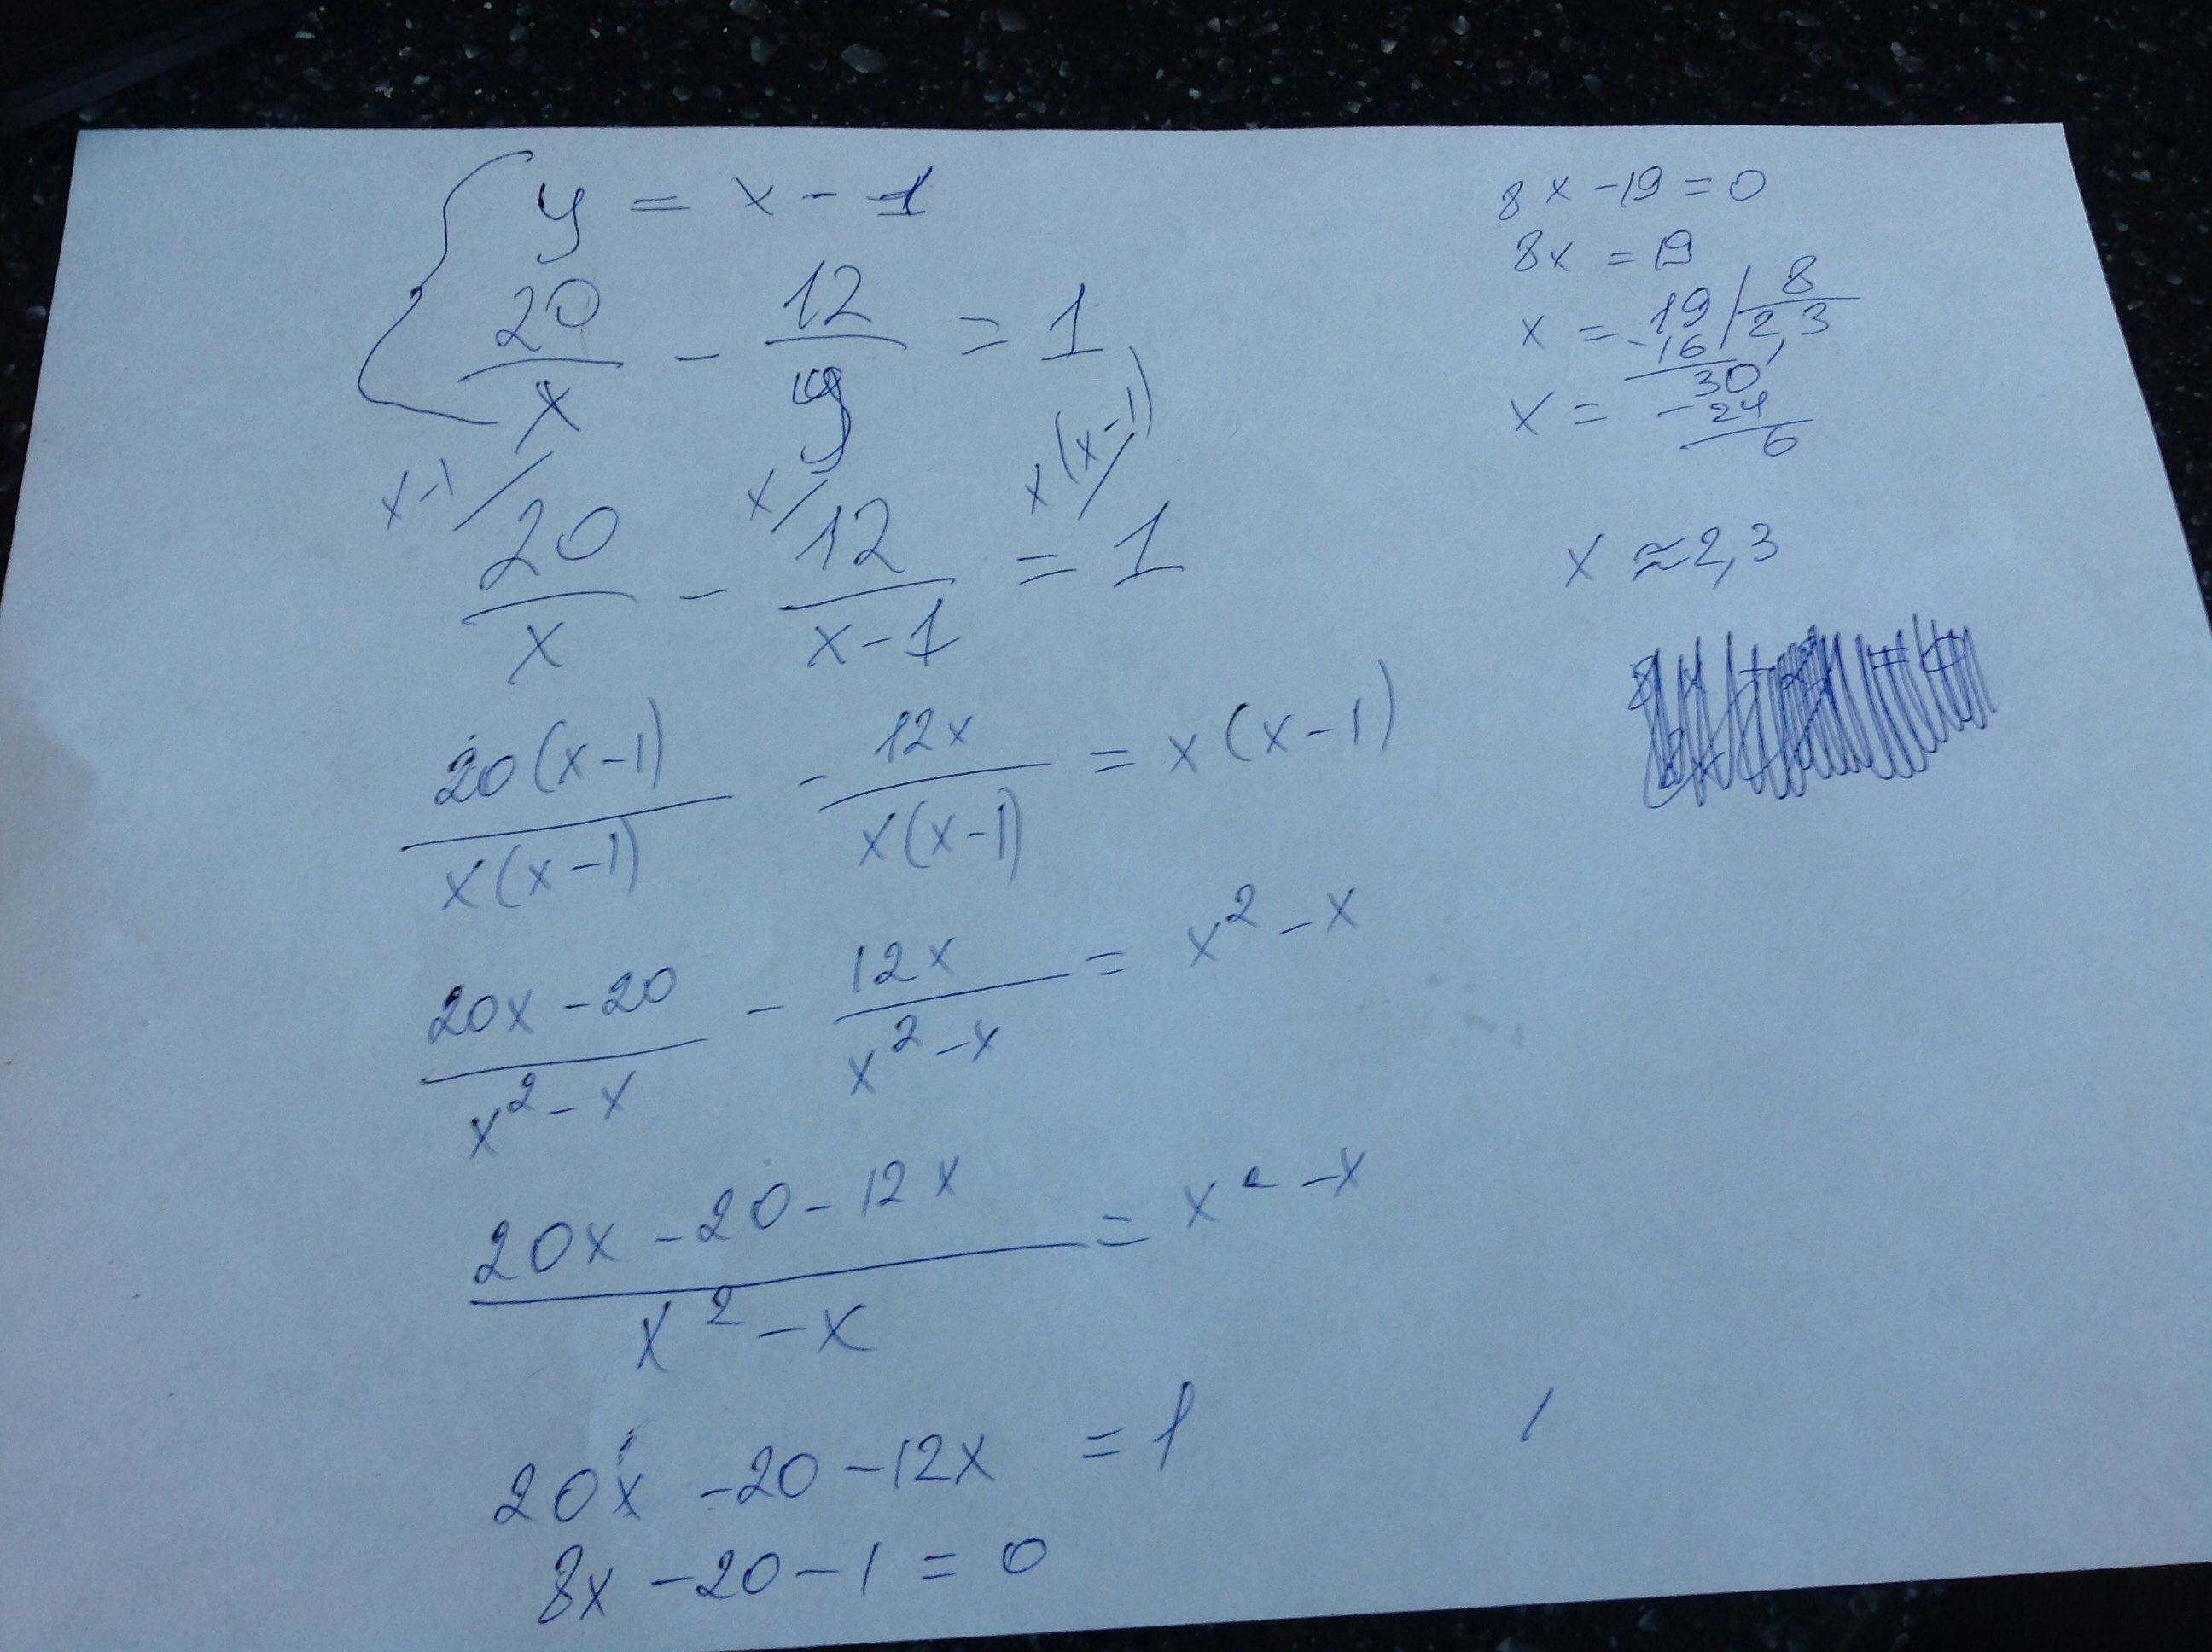 y = x - 1
20/x - 12/y = 1
x-1/ x/ x(x-1)/
20/x - 12/(x-1) = 1
20(x-1)/x(x-1) - 12x/x(x-1) = x(x-1)
(20x-20)/(x²-x) - 12x/(x²-x) = x²-x
(20x-20-12x)/(x²-x) = x²-x
20x -20 -12x = 1
8x -20 -1 = 0
8x -19 = 0
8x = 19
x = 19 | 8
-16 2,3
30
x = -24
6
x ≈ 2,3